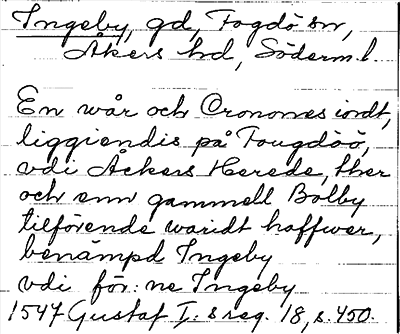 Ingeby, gd, Fogdö sn,
Åkers hd, Söderm. l.
En wår och Cronones iordt,
liggiendis på Fougdöö,
vdi Åckers Herede, ther
och enn gammell Bolby
tilförende waridt haffwer,
benämpd Ingeby
vdi för:ne Ingeby
1547 Gustaf I:s reg. 18, s. 450.